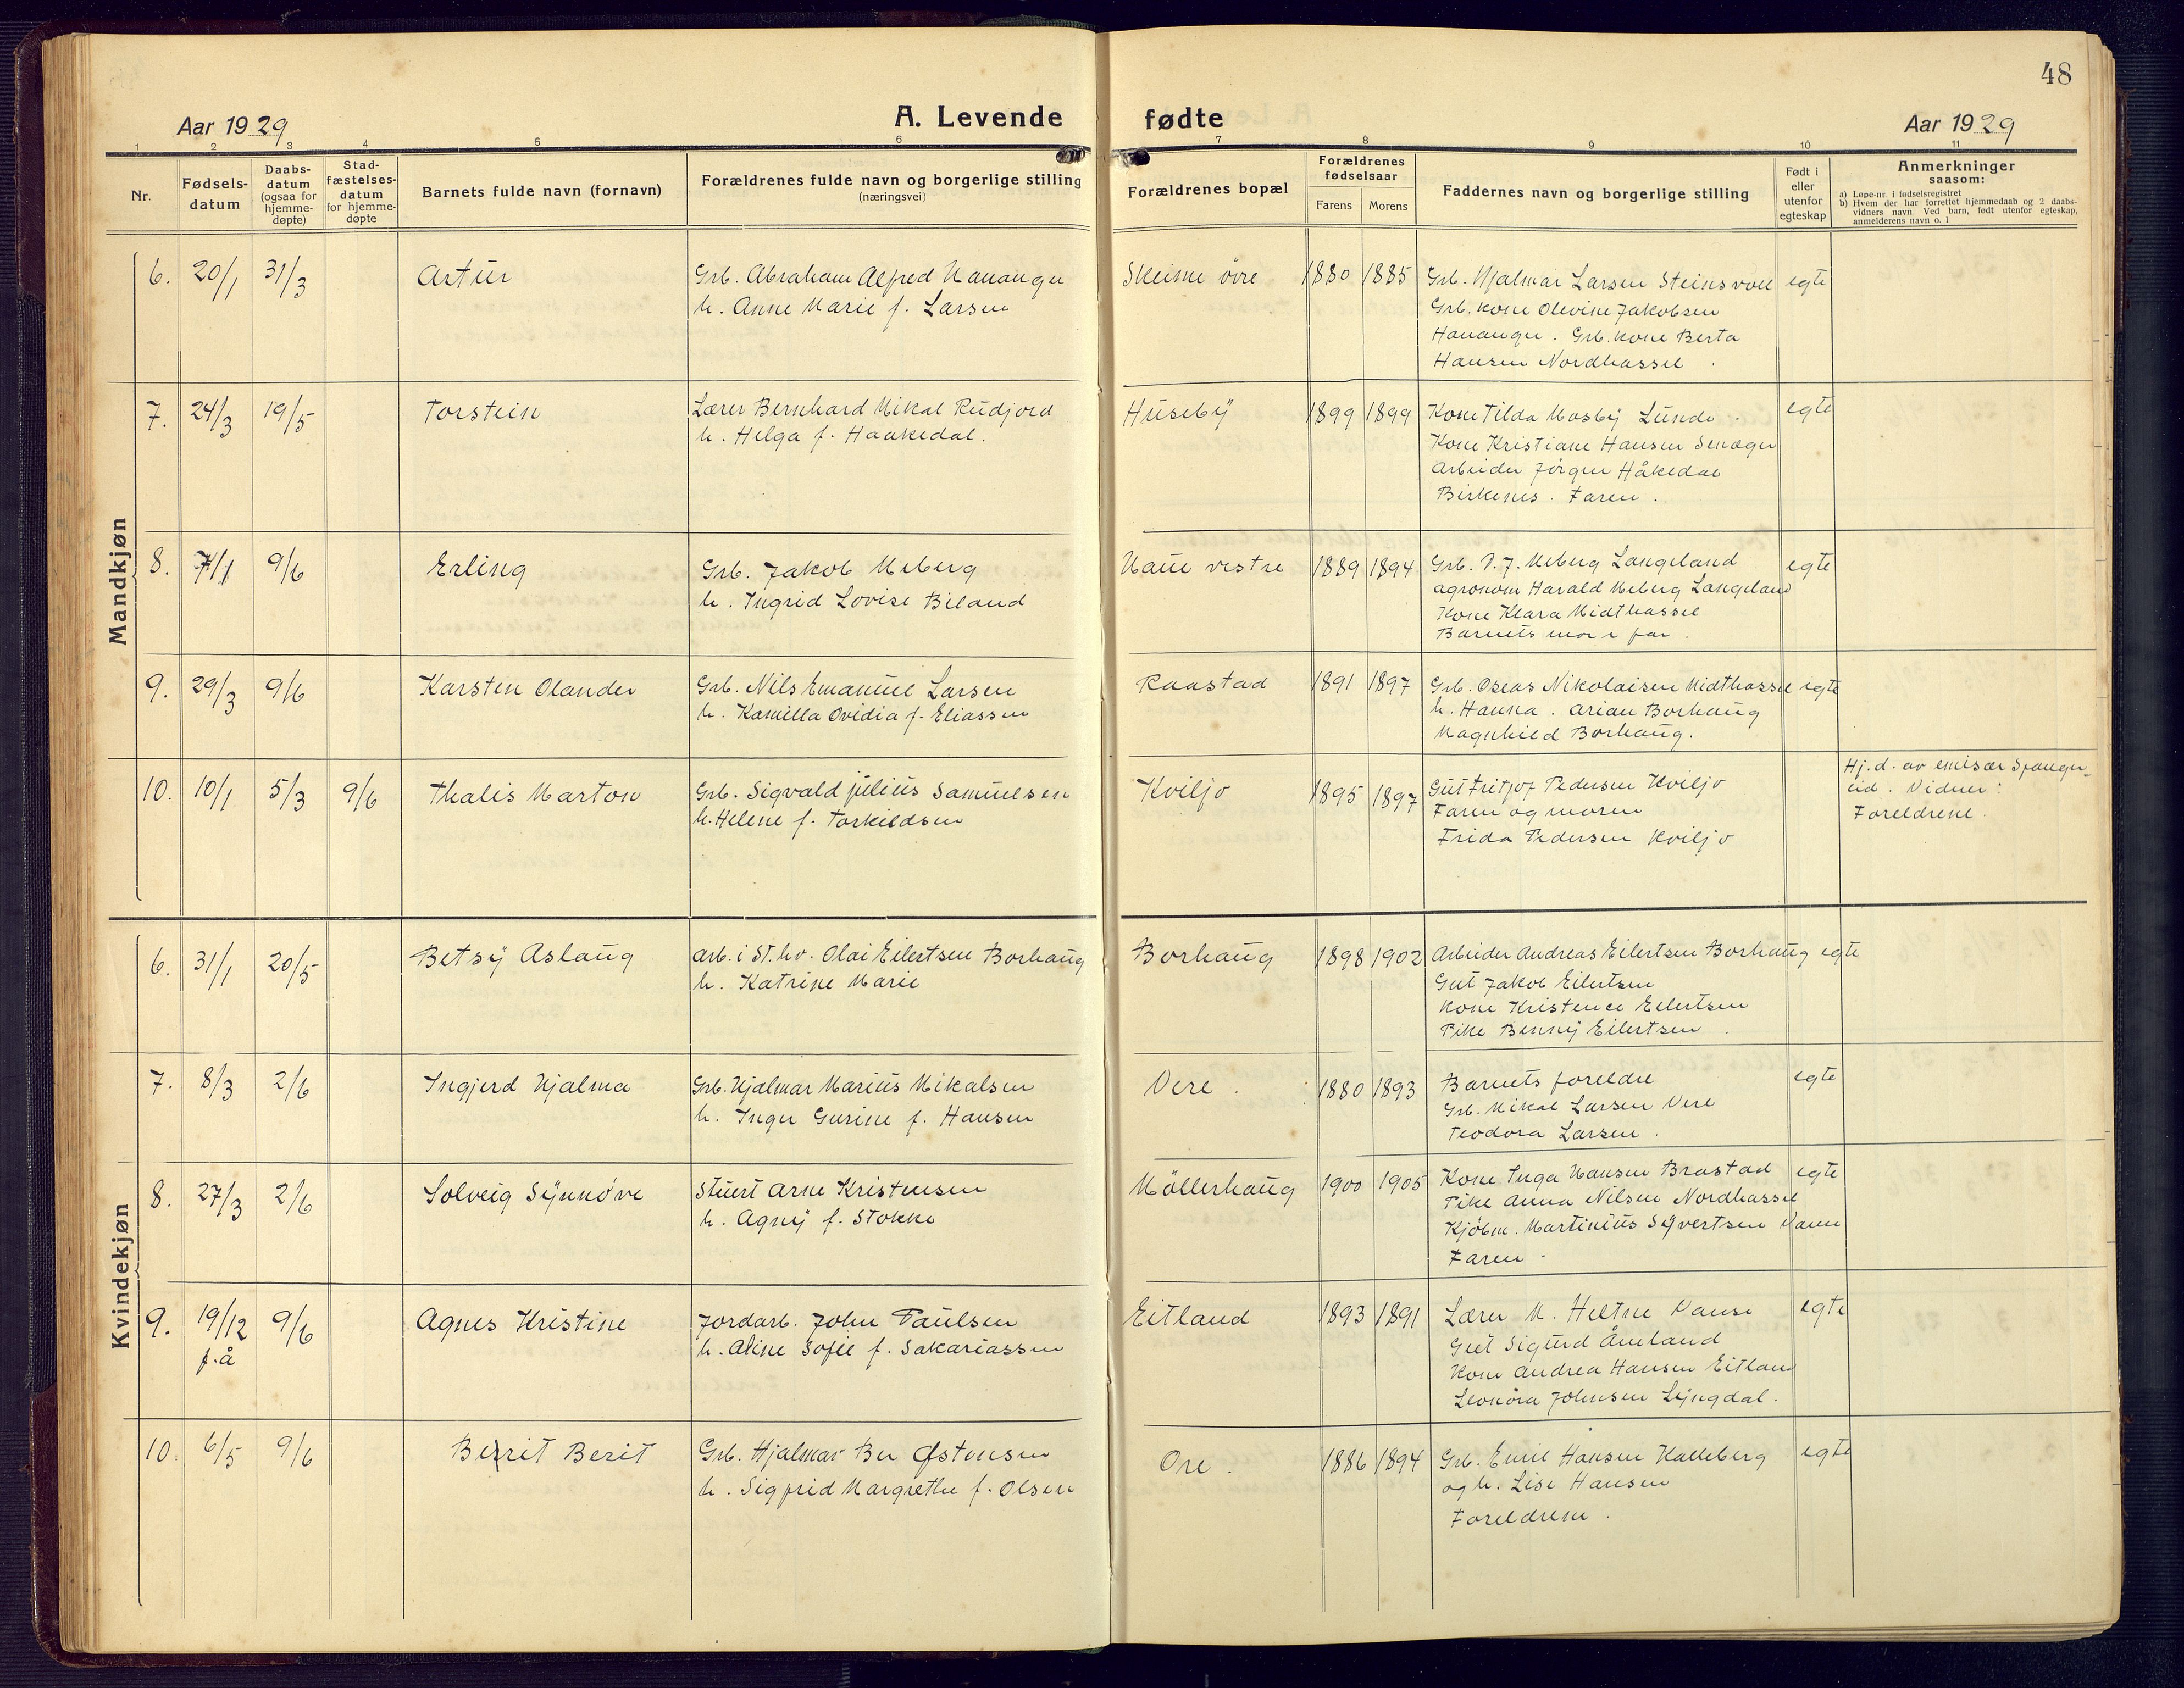 48
Aar 1929
A. Levende
fødte
Aar 1929
1 2 3 4 5 6 7 8 9 10 11
Nr.
Fødsels-
datum
Daabs-
datum
(ogsaa for
hjemme-
døpte)
Stad-
fæstelses-
datum
for hjemme-
døpte
Barnets fulde navn (fornavn)
Forældrenes fulde navn og borgerlige stilling
(næringsvei)
Forældrenes bopæl
Forældrenes
fødselsaar
Farens Morens
Faddernes navn og borgerlige stilling
Født i
eller
utenfor
egteskap
Anmerkninger
saasom:
a) Løpe-nr. i fødselsregistret
b) Hvem der har forrettet hjemmedaab og 2 daabs-
vidners navn Ved barn, født utenfor egteskap,
anmelderens navn o. l
Mandkjøn
6. 20/1 31/3 Artur
Grb. Abraham Alfred Hananger
h. Anne Marie f. Larsen
Skeime øvre 1880 1885
Grb. Hjalmar Larsen Steinsvoll egte
Grb. kone Olevine Jakobsen
Hananger. Grb. kone Berta
Hansen Nordhassel.
7. 24/3 19/5 Torstein
Lærer Bernhard Mikal Rudjord
h. Helga f. Haakedal.
Huseby 1899 1899
Kone Tilda Mosby Lunde. egte
Kone Kristiane Hansen
Arbeider Jörgen Håkedal
Birkenes. Faren.
8. 7/1 9/6 Erling
Grb. Jakob Meberg
h. Ingrid Lovise Biland
Haue vestre 1889 1894
Grb. Meberg Langeland egte
agronom Harald Meberg Langeland
Kone Klara Midthassel
Barnets mor far.
9. 29/3 9/6 Karsten Olander
Grb. Nils Emanuel Larsen
h. Kamilla Ovidia f. Eliassen
Raastad 1891 1897
Grb. Oseas Nikolaisen Midthassel egte
h. Hanna. Arian Borhaug
Magnhild Borhaug.
10. 10/1 5/3 9/6 Thalis Marton
Grb. Sigvald Julius Samuelsen
h. Helene f. Torkildsen
Kviljo 1895 1897
Gut Fritjof Pedersen Kviljo
Faren og moren
Frida Pedersen Kviljo
Hj.d. av emisær Spanger-
eid. Vidner:
Foreldrene.
Kvindekjøn
6. 31/1 20/5 Betsy Aslaug
Arb. i St.hv. Olai Eilertsen Borhaug
h. Katrine Marie
Borhaug 1898 1902
Arbeider Andreas Eilertsen Borhaug egte
Gut Jakob Eilertsen
Kone Kristence Eilertsen
Pike Benny Eilertsen.
7. 8/3 2/6 Ingjerd Hjalma
Grb. Hjalmar Marius Mikalsen
h. Inger Gurine f. Hansen
Vere. 1880 1893
Barnets foreldre egte
Grb. Mikal Larsen Vere
Teodora Larsen.
8. 27/3 2/6 Solveig Synnøve
Stuert Arne Kristensen
h. Agny f. Stokke
Møllerhaug 1900 1905
Kone Inga Hansen Brastad egte
Pike Anna Nilsen Nordhassel
Kjøbm. Martinius Syvertsen Vanse
Faren.
9. 19/12 9/6 Agnes Kristine
f.å
Jordarb. John Paulsen
h. Aline Sofie f. Sakariassen
Eitland 1893 1891
Lærer M. Heltne Vanse egte
Gut Sigurd Åmland
Kone Andrea Hansen Eitland
Leonora Johnsen Lyngdal.
10. 6/5 9/6 Berit Berit
Grb. Hjalmar Ber Østensen
h. Sigfrid Margrethe f. Olsen
Ore. 1886 1894
Grb. Emil Hansen Kalleberg egte
og h. Lise Hansen
Foreldrene.